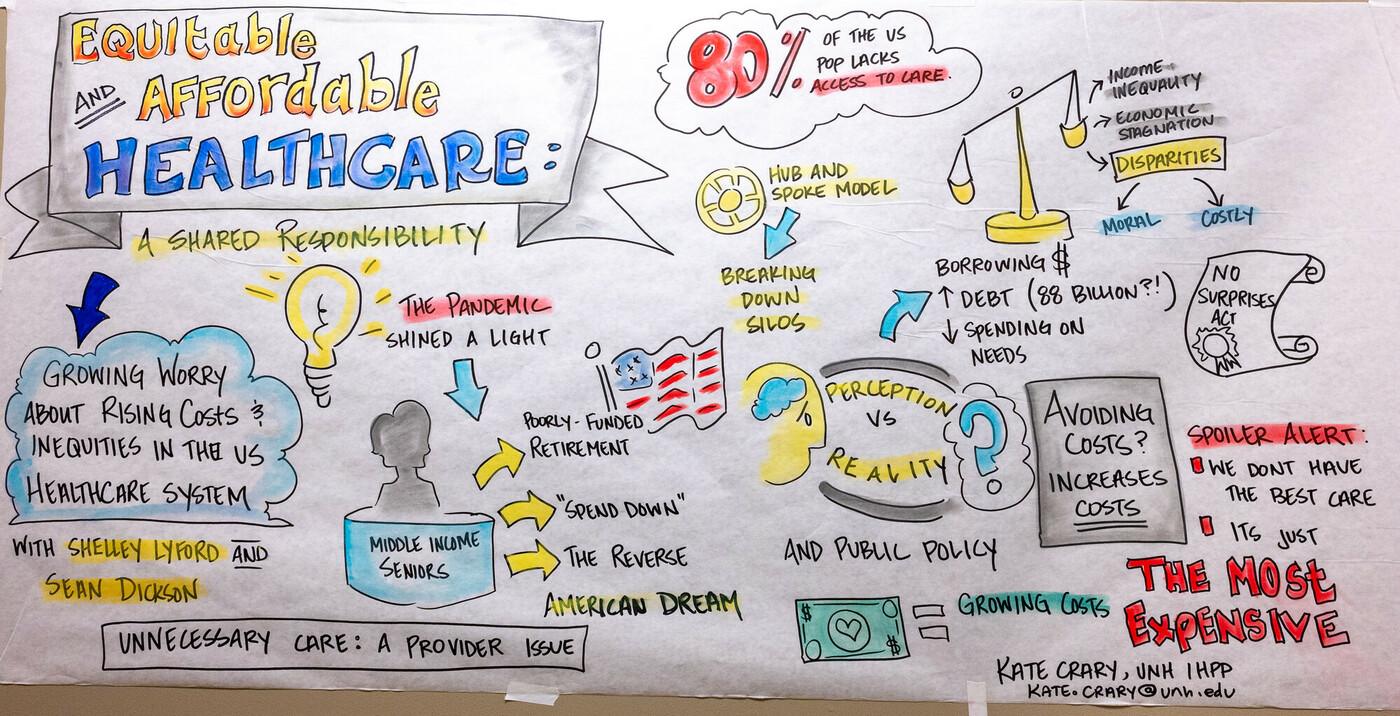 EQUItable
AND AFFORdable
HEALTHCARE:
A SHARED RESPONSIBILITY
GROWING WORRY
ABOUT RISING COSTS &
INEQUITIES IN THE US
HEALTHCARE SYSTEM
WITH SHELLEY LYFORD AND
SEAN DICKSON
THE PANDEMIC
SHINED A LIGHT
MIDDLE INCOME
SENIORS
POORLY-FUNDED
RETIREMENT
"SPEND DOWN"
THE REVERSE
AMERICAN DREAM
UNNECESSARY CARE: A PROVIDER ISSUE
80% OF THE US
POP LACKS
ACCESS TO CARE.
HUB AND
SPOKE MODEL
BREAKING
DOWN
SILOS
INCOME
INEQUALITY
ECONOMIC
STAGNATION
DISPARITIES
MORAL
COSTLY
BORROWING $
↑ DEBT (88 BILLION?!)
↓ SPENDING ON
NEEDS
NO
SURPRISES
ACT
PERCEPTION
VS
REALITY
?
AND PUBLIC POLICY
AVOIDING
COSTS?
INCREASES
COSTS
SPOILER ALERT:
WE DONT HAVE
THE BEST CARE
ITS JUST
THE MOSt
EXPENSIVE
$ $
= GROWING COSTS
KATE CRARY, UNH IHPP
KATE.CRARY@unh.edu